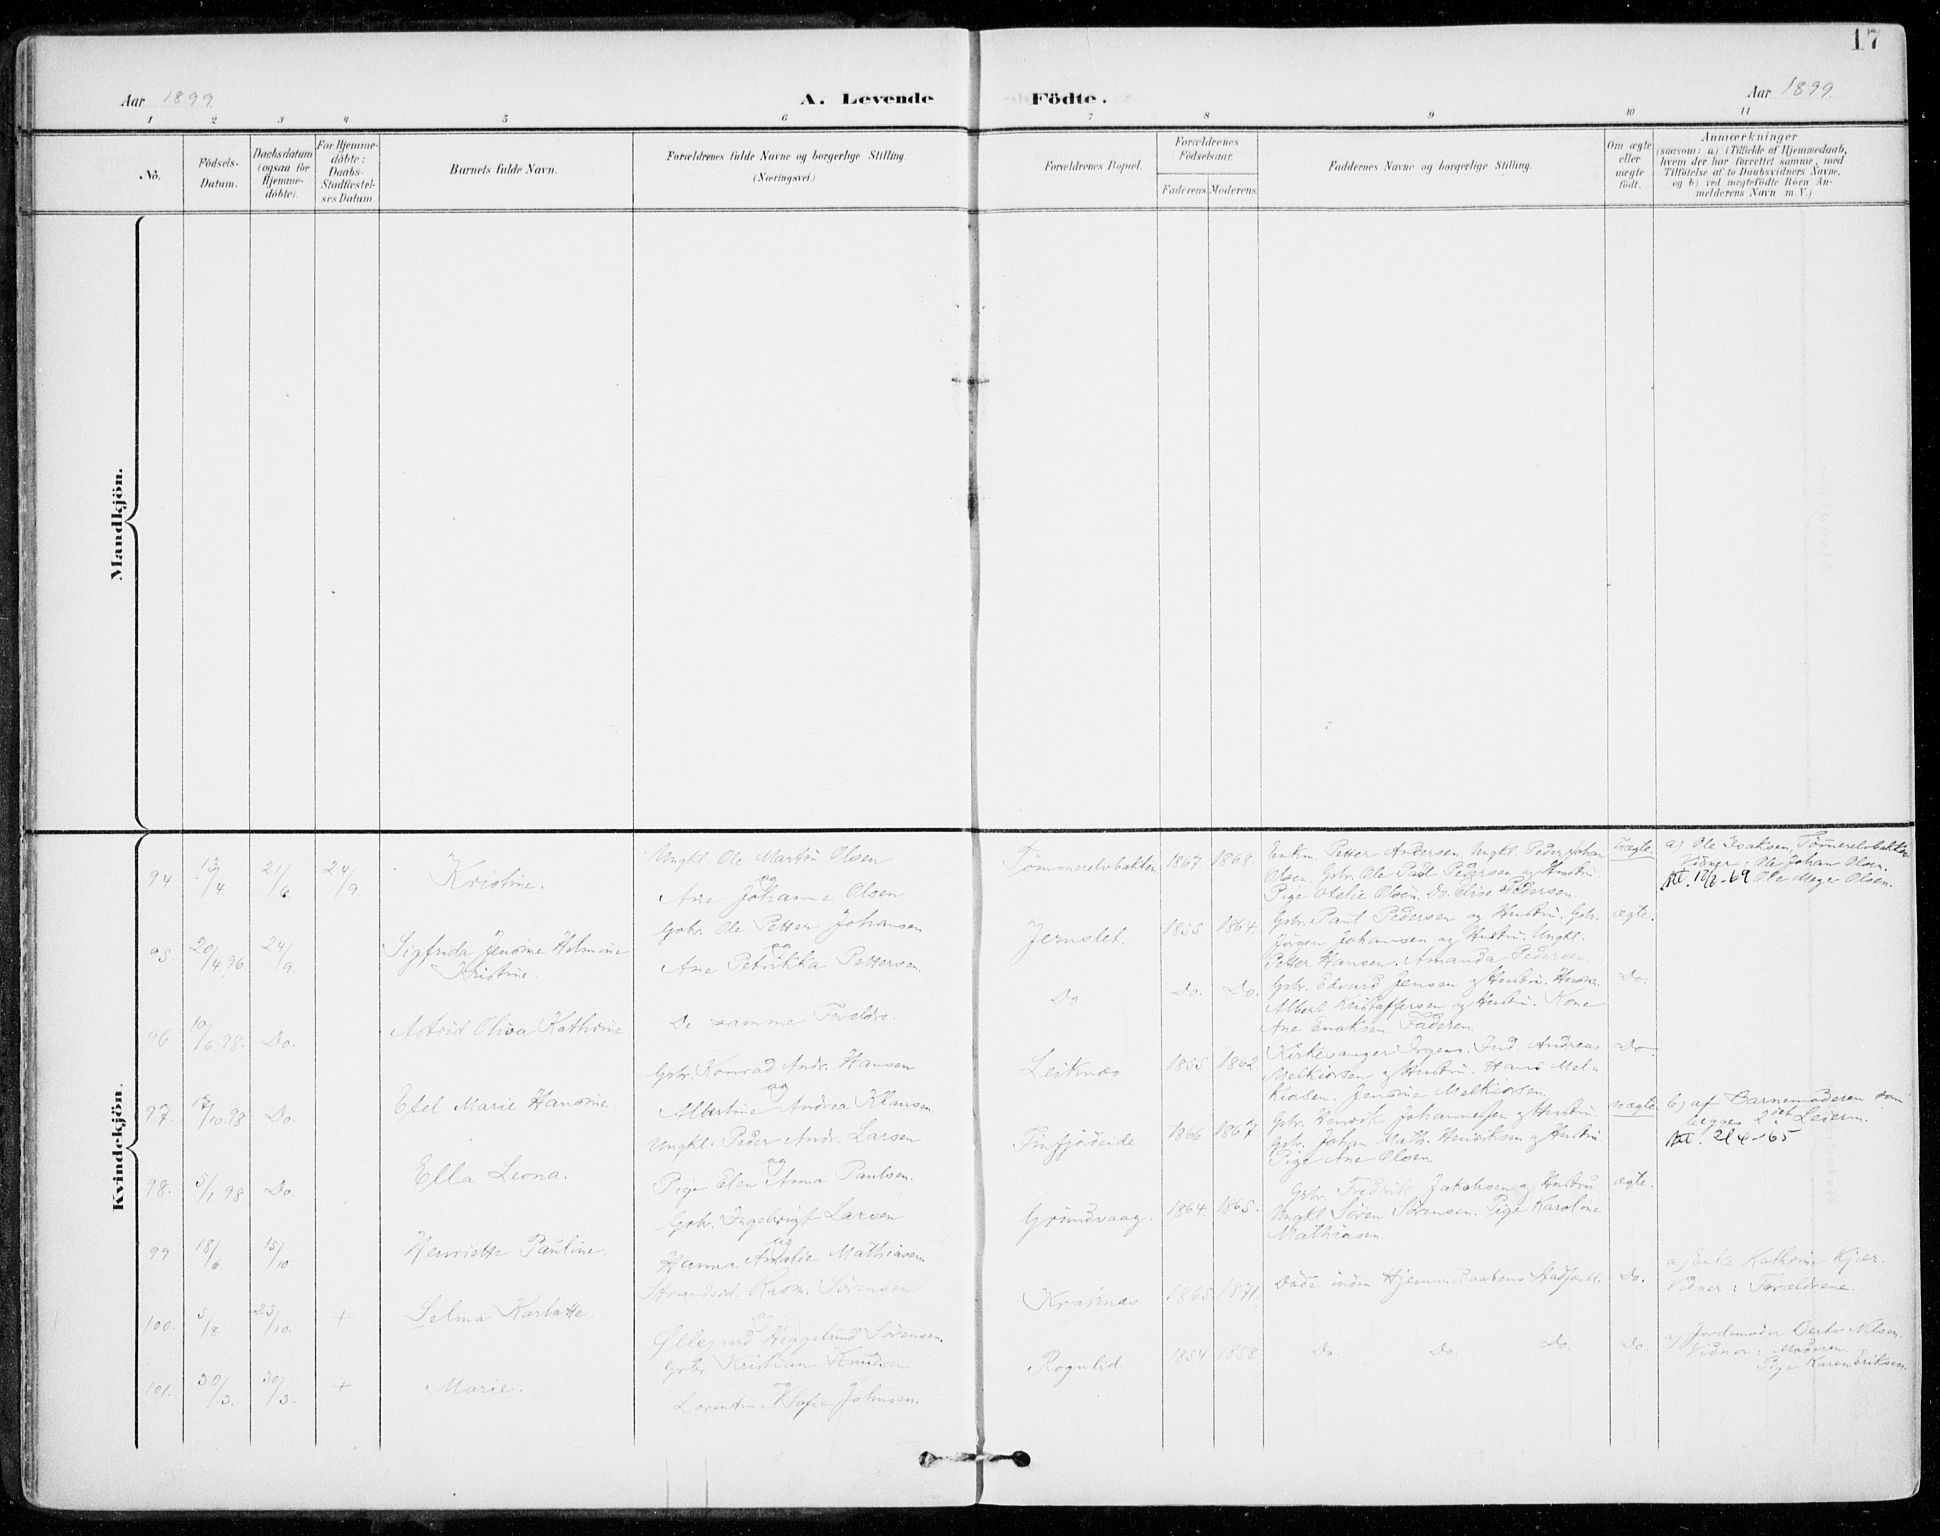 17
Aar 1899.
A. Levende Födte.
Aar 1899.
1 2 3 4 5 6 7 8 9 10 11
No.
Födsels-
Datum.
Daabsdatum
(ogsaa för
Hjemme-
döbte).
For Hjemme-
döbte:
Daabs-
Stadfæstel-
ses Datum.
Barnets fulde Navn.
Forældrenes fulde Navne og borgerlige Stilling.
(Næringsvei.)
Forældrenes Bopæl.
Forældrenes
Födselsaar.
Faderens. Moderens.
Faddernes Navne og borgerlige Stilling.
Om ægte
eller
uægte
födt.
Anmærkninger
(saasom: a) i Tilfælde af Hjemmedaab,
hvem der har forrettet samme, med
Tilföielse af to Daabsvidners Navne,
og b) ved uægtefödte Börn An-
melderens Navn m. V.)
Mandkjön.
Kvindekjön.
94. 13/4 21/6 24/9 Kristine.
Ungkl. Ole Martin Olsen
og
Ane Johanne Olsen
Tømmerelvbakken. 1867. 1868.
Enkm. Petter Andersen. Ungkl. Peder Johan
Olsen. Gbr. Ole Paul Pedersen og Hustru.
Pige Otelie Olsen. Do. Elise Pedersen.
uægte.
a) Ole Isaksen, Tømmerelvbakken
Vidner: Ole Johan Olsen.
Ole Meyer Olsen.
95. 20/4.96. 24/9. Sigfrida Jensine Helmine
Kristine.
Gbr. Ole Petter Johansen
og
Ane Petrikka Pettersen.
Jernslet. 1855. 1864.
Gbr. Paul Pedersen og Hustru. Gbr.
Jørgen Johansen og Hustru. Ungkl.
Petter Hansen. Amanda Pedersen.
ægte.
96 10/6.98. Do. Astrid Oliva Kathrine
De samme Forældre.
Do Do. Do.
Gbr. Edvard Jensen og Hustru.
Albert Kristoffersen og Hustru. Kone
Ane Enoksen. Faderen.
Do.
97. 17/10.98 Do. Etel Marie Hansine.
Gbr. Konrad Andr. Hansen
og
Albertine Andrea Klausen.
Leiknes 1855. 1862.
Kirkesanger Irgens. Ind. Andreas
Melkiorsen og Hustru. Hans Mel-
kiorsen. Jensine Melkiorsen.
Do
98. 5/1 98 Do. Ella Leona.
Ungkl. Peder Andr. Larsen
og
Pige Elen Anna Paulsen.
Finfjordeide 1866. 1867
Gbr. Henrik Johannesen og Hustru.
Gbr. Johan Math. Henriksen og Hustru.
Pige Ane Olsen
uægte.
b) af Barnemoderen som
begges 2det Leierm.
99 18/6 15/10. Henriette Pauline.
Gbr. Ingebrigt Larsen
og
Hanna Amalie Mathiasen.
Grundvaag. 1864. 1865.
Gbr. Fredrik Jakobsen og Hustru
Ungkl. Søren Sørensen. Pige Karoline
Mathiasen.
ægte.
100. 5/8 23/10. + Selma Karlotte.
Strandsid. Rasm. Sørensen
og
Øllegaard Heggelund Sørensen.
Kraknes 1865 1871.
Døde inden Hjemmedaabens Stadfæst.
Do.
a) Enke Kathrine Kjær.
Vidner: Forældrene.
101. 30/3. 30/3. + Marie.
Gbr. Kristian Knudsen
og
Lorentine Sofie Johnsen.
Rognlid. 1854 1858
Do. Do. Do.
Do.
a) Jordemoder Berte Nilsen.
Vidner: Moderen.
Pige Karen Eriksen.